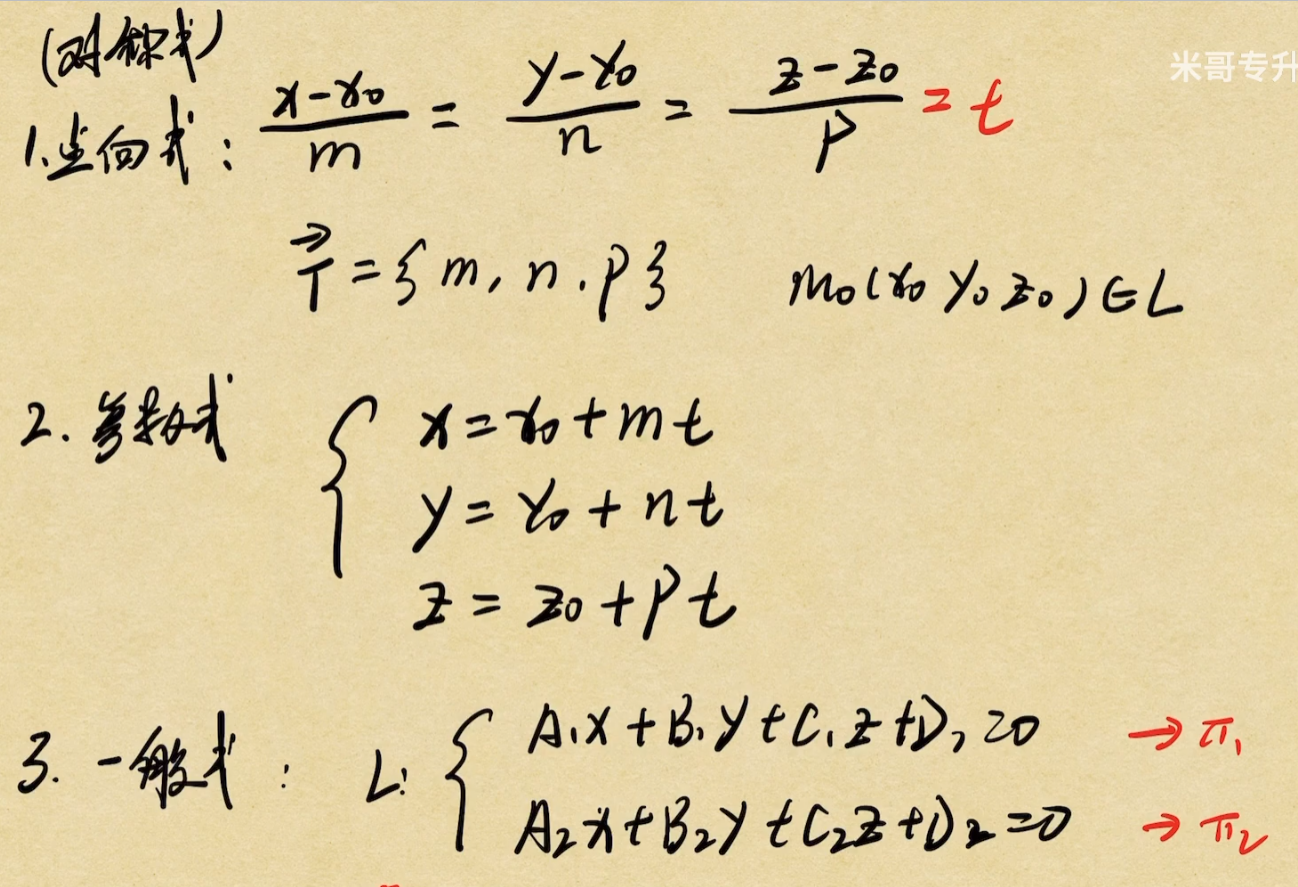 (对称式)
米哥专升
1.点向式: (x-x₀)/m = (y-y₀)/n = (z-z₀)/p = t
T⃗ = {m, n, p} M₀(x₀ y₀ z₀) ∈ L
2. 参数式 { x = x₀ + mt
y = y₀ + nt
z = z₀ + pt
3. 一般式: L: { A₁x + B₁y + C₁z + D₁ = 0 → π₁
A₂x + B₂y + C₂z + D₂ = 0 → π₂